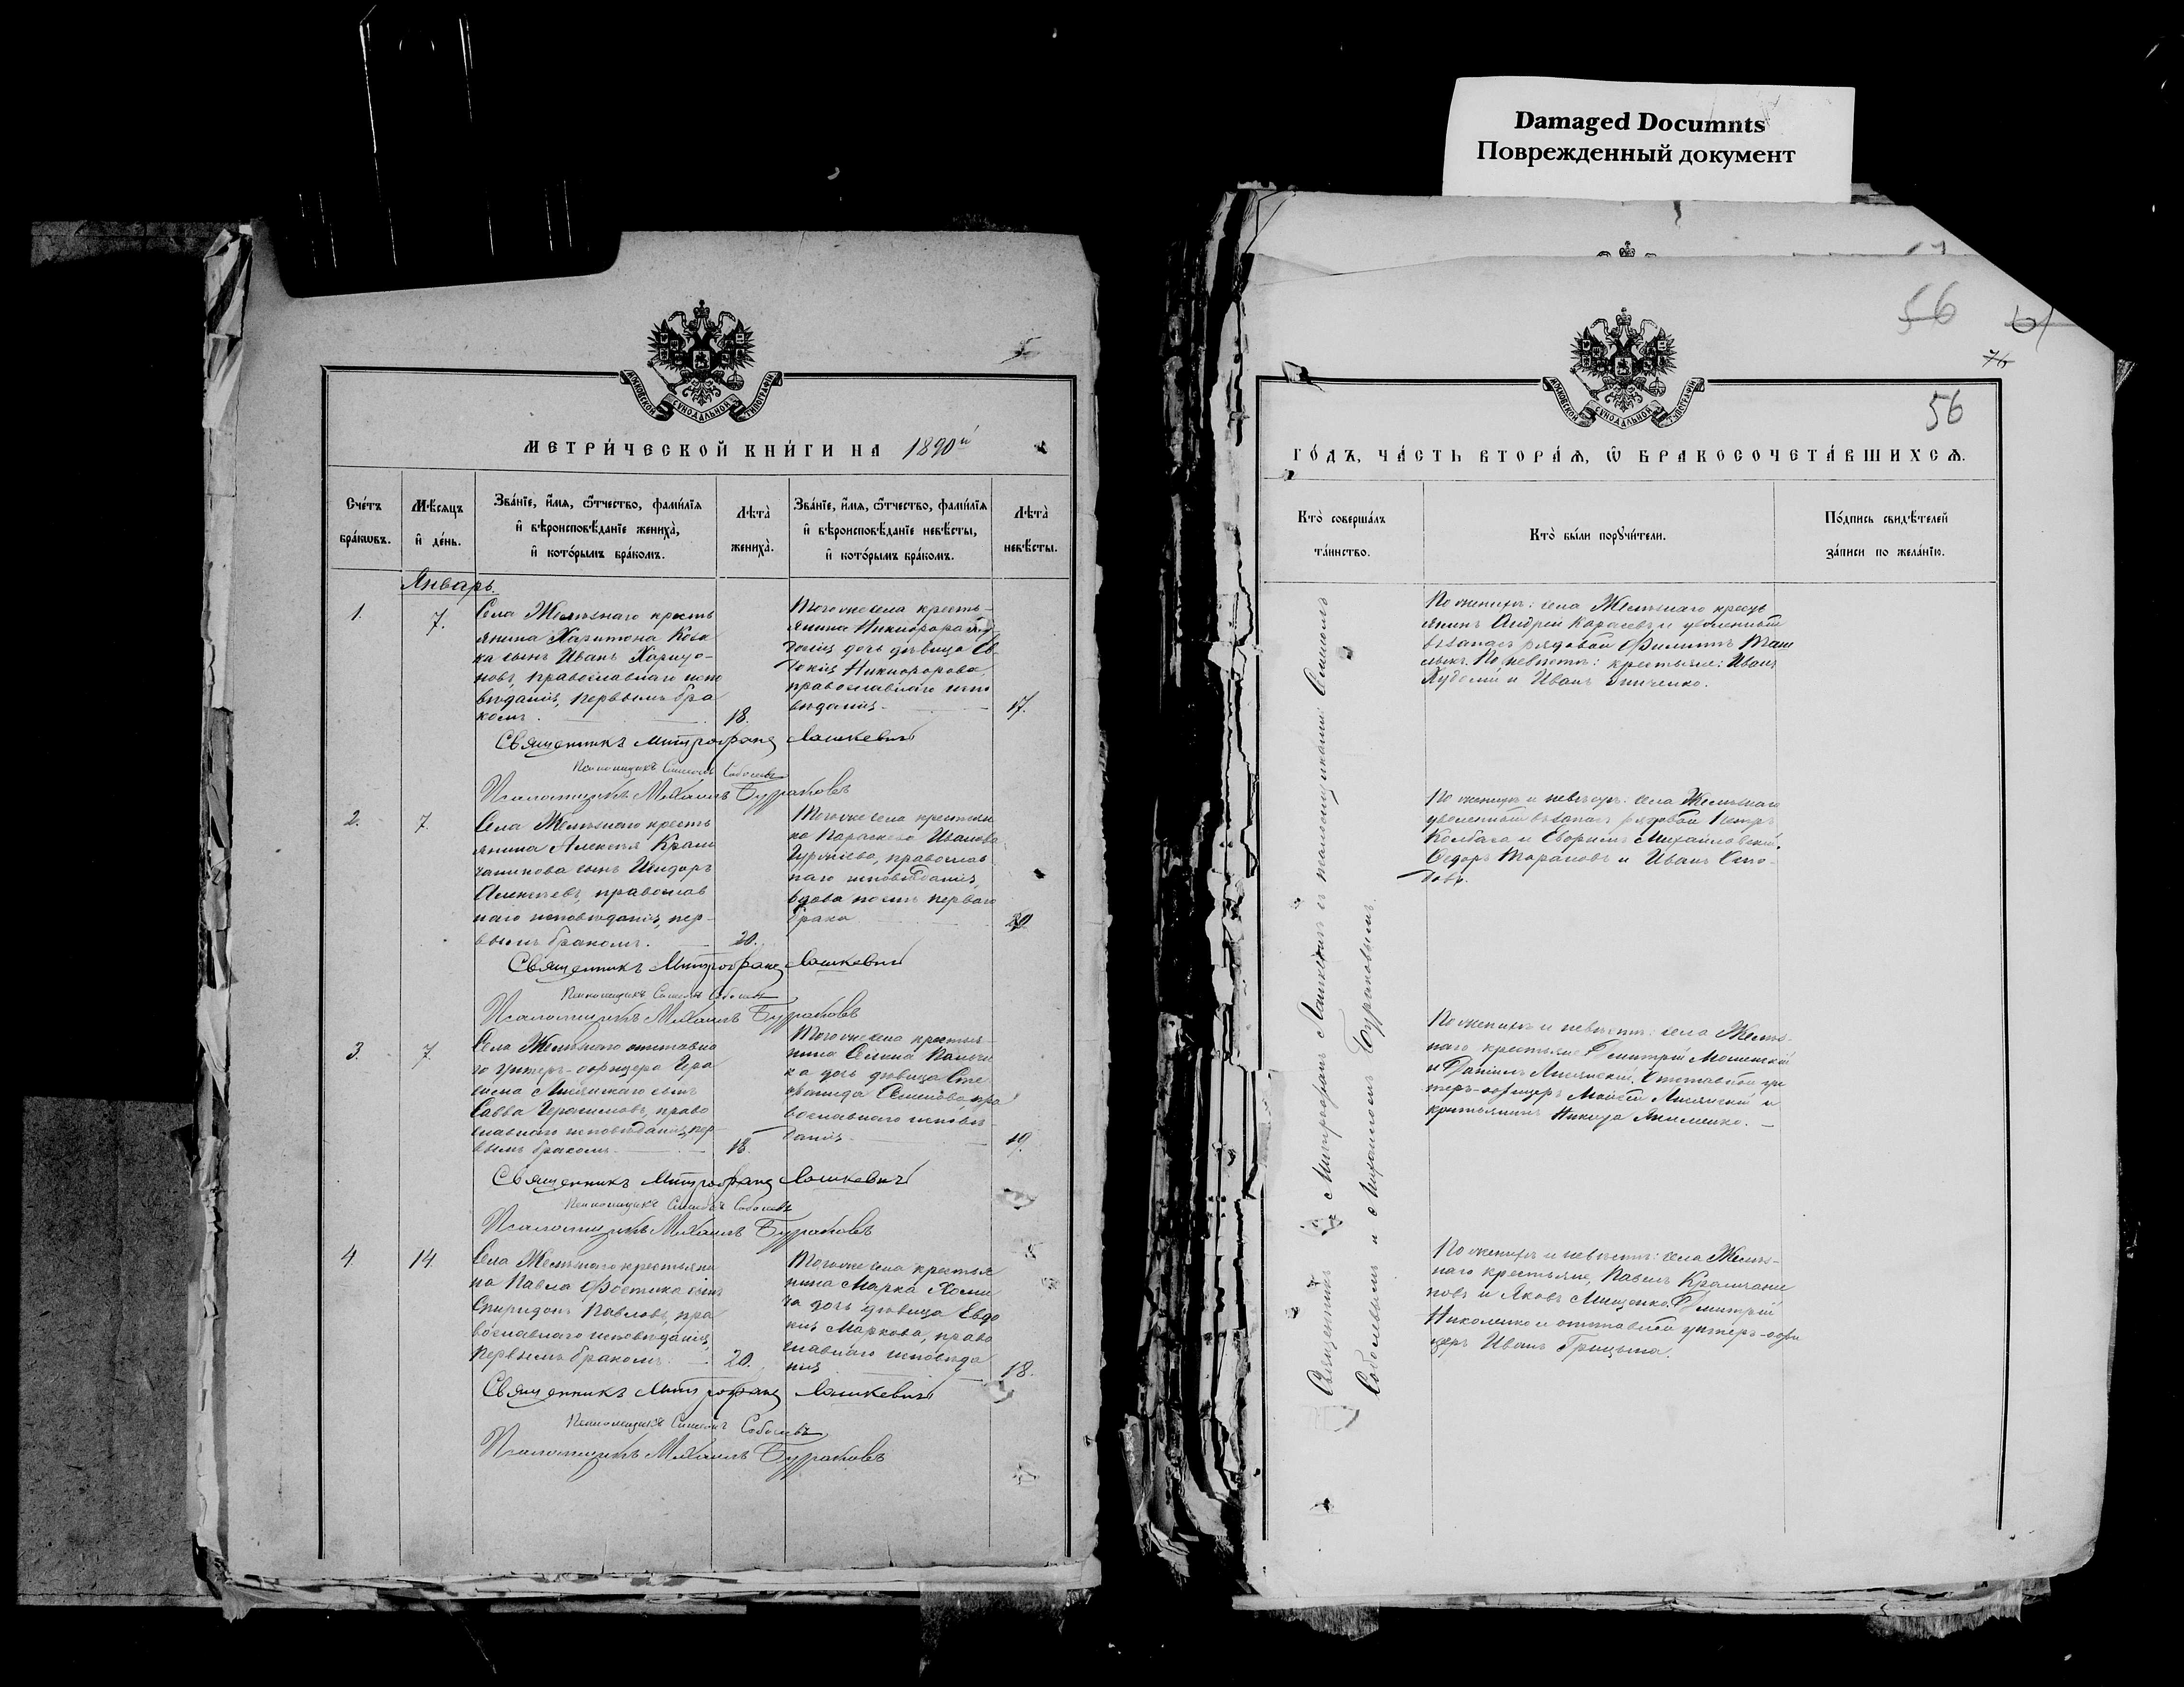 Damaged Documnts
Поврежденный документ
МОСКОВСКОЙ СѴНОДАЛЬНОЙ ТИПОГРАФІИ
МЕТРИ́ЧЕСКОЙ КНИ́ГИ НА 1890й
Сче́тъ бра́кѡвъ.
Мѣ́сяцъ и҆ де́нь.
Зва́нїе, и҆́мѧ, ѻ҆́тчество, фами́лїѧ
и҆ вѣроисповѣ́данїе жениха̀,
и҆ кото́рымъ бра́комъ.
Лѣта̀ жениха̀.
Зва́нїе, и҆́мѧ, ѻ҆́тчество, фами́лїѧ
и҆ вѣроисповѣ́данїе невѣ́сты,
и҆ кото́рымъ бра́комъ.
Лѣта̀ невѣ́сты.
Январь.
1.
7.
Села Желѣзнаго кресть
янина Харитона Коза
ка сынъ Иванъ Харито-
новъ, православнаго испо
вѣданія, первымъ бра
комъ.
18.
Того же села кресть-
янина Никифора
дочь дѣвица Ев
докія Никифорова,
православнаго испо
вѣданія
17.
Священникъ Митрофанъ Лашкевичъ
Псаломщикъ Симеонъ Соболевъ
Псаломщикъ Михаилъ Бурлаковъ
2.
7.
Села Желѣзнаго кресть
янина Алексѣя Крам
чанинова сынъ Исидоръ
Алексѣевъ, православ
наго исповѣданія, пер-
вымъ бракомъ.
20.
Того же села крестьян
ка Параскева Иванова
православ
наго исповѣданія,
вдова послѣ перваго
брака
20.
Священникъ Митрофанъ Лашкевичъ
Псаломщикъ Симеонъ Соболевъ
Псаломщикъ Михаилъ Бурлаковъ
3.
7.
Села Желѣзнаго отставна
го унтеръ-офицера Гера
сима Лисянскаго сынъ
Савва Герасимовъ, право
славнаго исповѣданія, пер-
вымъ бракомъ
18.
Того же села крестья-
нина Семена
ка дочь дѣвица Сте
фанида Семенова пра
вославнаго исповѣ-
данія
19.
Священникъ Митрофанъ Лашкевичъ
Псаломщикъ Симеонъ Соболевъ
Псаломщикъ Михаилъ Бурлаковъ
4.
14.
Села Желѣзнаго крестьяни
на Павла Фостика сынъ
Спиридонъ Павловъ, пра
вославнаго исповѣданія,
первымъ бракомъ.
20.
Того же села крестья
нина Марка Хоми
ча дочь дѣвица Евдо
кія Маркова, право
славнаго исповѣда
нія
18.
Священникъ Митрофанъ Лашкевичъ
Псаломщикъ Симеонъ Соболевъ
Псаломщикъ Михаилъ Бурлаковъ
56
76
56
МОСКОВСКОЙ СѴНОДАЛЬНОЙ ТИПОГРАФІИ
ГО́ДЪ, ЧА́СТЬ ВТОРА́Я, Ѽ БРАКОСОЧЕТА́ВШИХСЯ.
Кто̀ соверша́лъ
та́инство.
Кто̀ бы́ли порꙋчи́тели.
По́дпись свидѣ́телей
за́писи по жела́нїю.
Священникъ Митрофанъ Лашкевичъ съ псаломщиками: Симеономъ
Соболевымъ и Михаиломъ Бурлаковымъ.
По женихѣ: села Желѣзнаго кресть
янинъ Андрей Карасевъ и уволенный
въ запасъ рядовой Филиппъ Таш
лыкъ. По невѣстѣ: крестьяне: Иванъ
и Иванъ
По женихѣ и невѣстѣ: села Желѣзнаго
уволенный въ запасъ рядовой Петръ
Колбаса и Михайловскій,
Ѳедоръ Тарановъ и Иванъ
По женихѣ и невѣстѣ: села Желѣз-
наго крестьяне Дмитрій
и Даніилъ Лисянскій. Отставной ун
теръ-офицеръ Моисей Лисянскій и
крестьянинъ Якименко.
По женихѣ и невѣстѣ: села Желѣз-
наго крестьяне, Павелъ Крамчани
новъ и Яковъ Мищенко. Дмитрій
Николенко и отставной унтеръ-офи
церъ Иванъ Грицына.